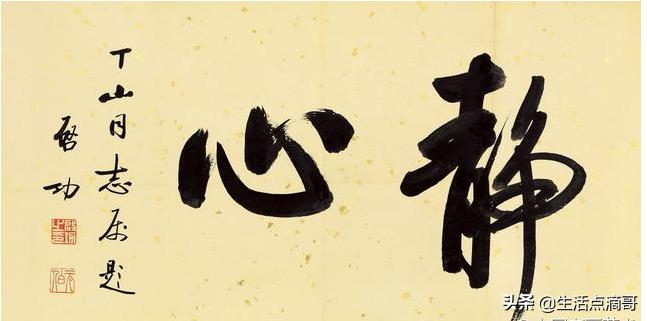 静心
丁山同志属题
启功
头条 @生活点滴哥